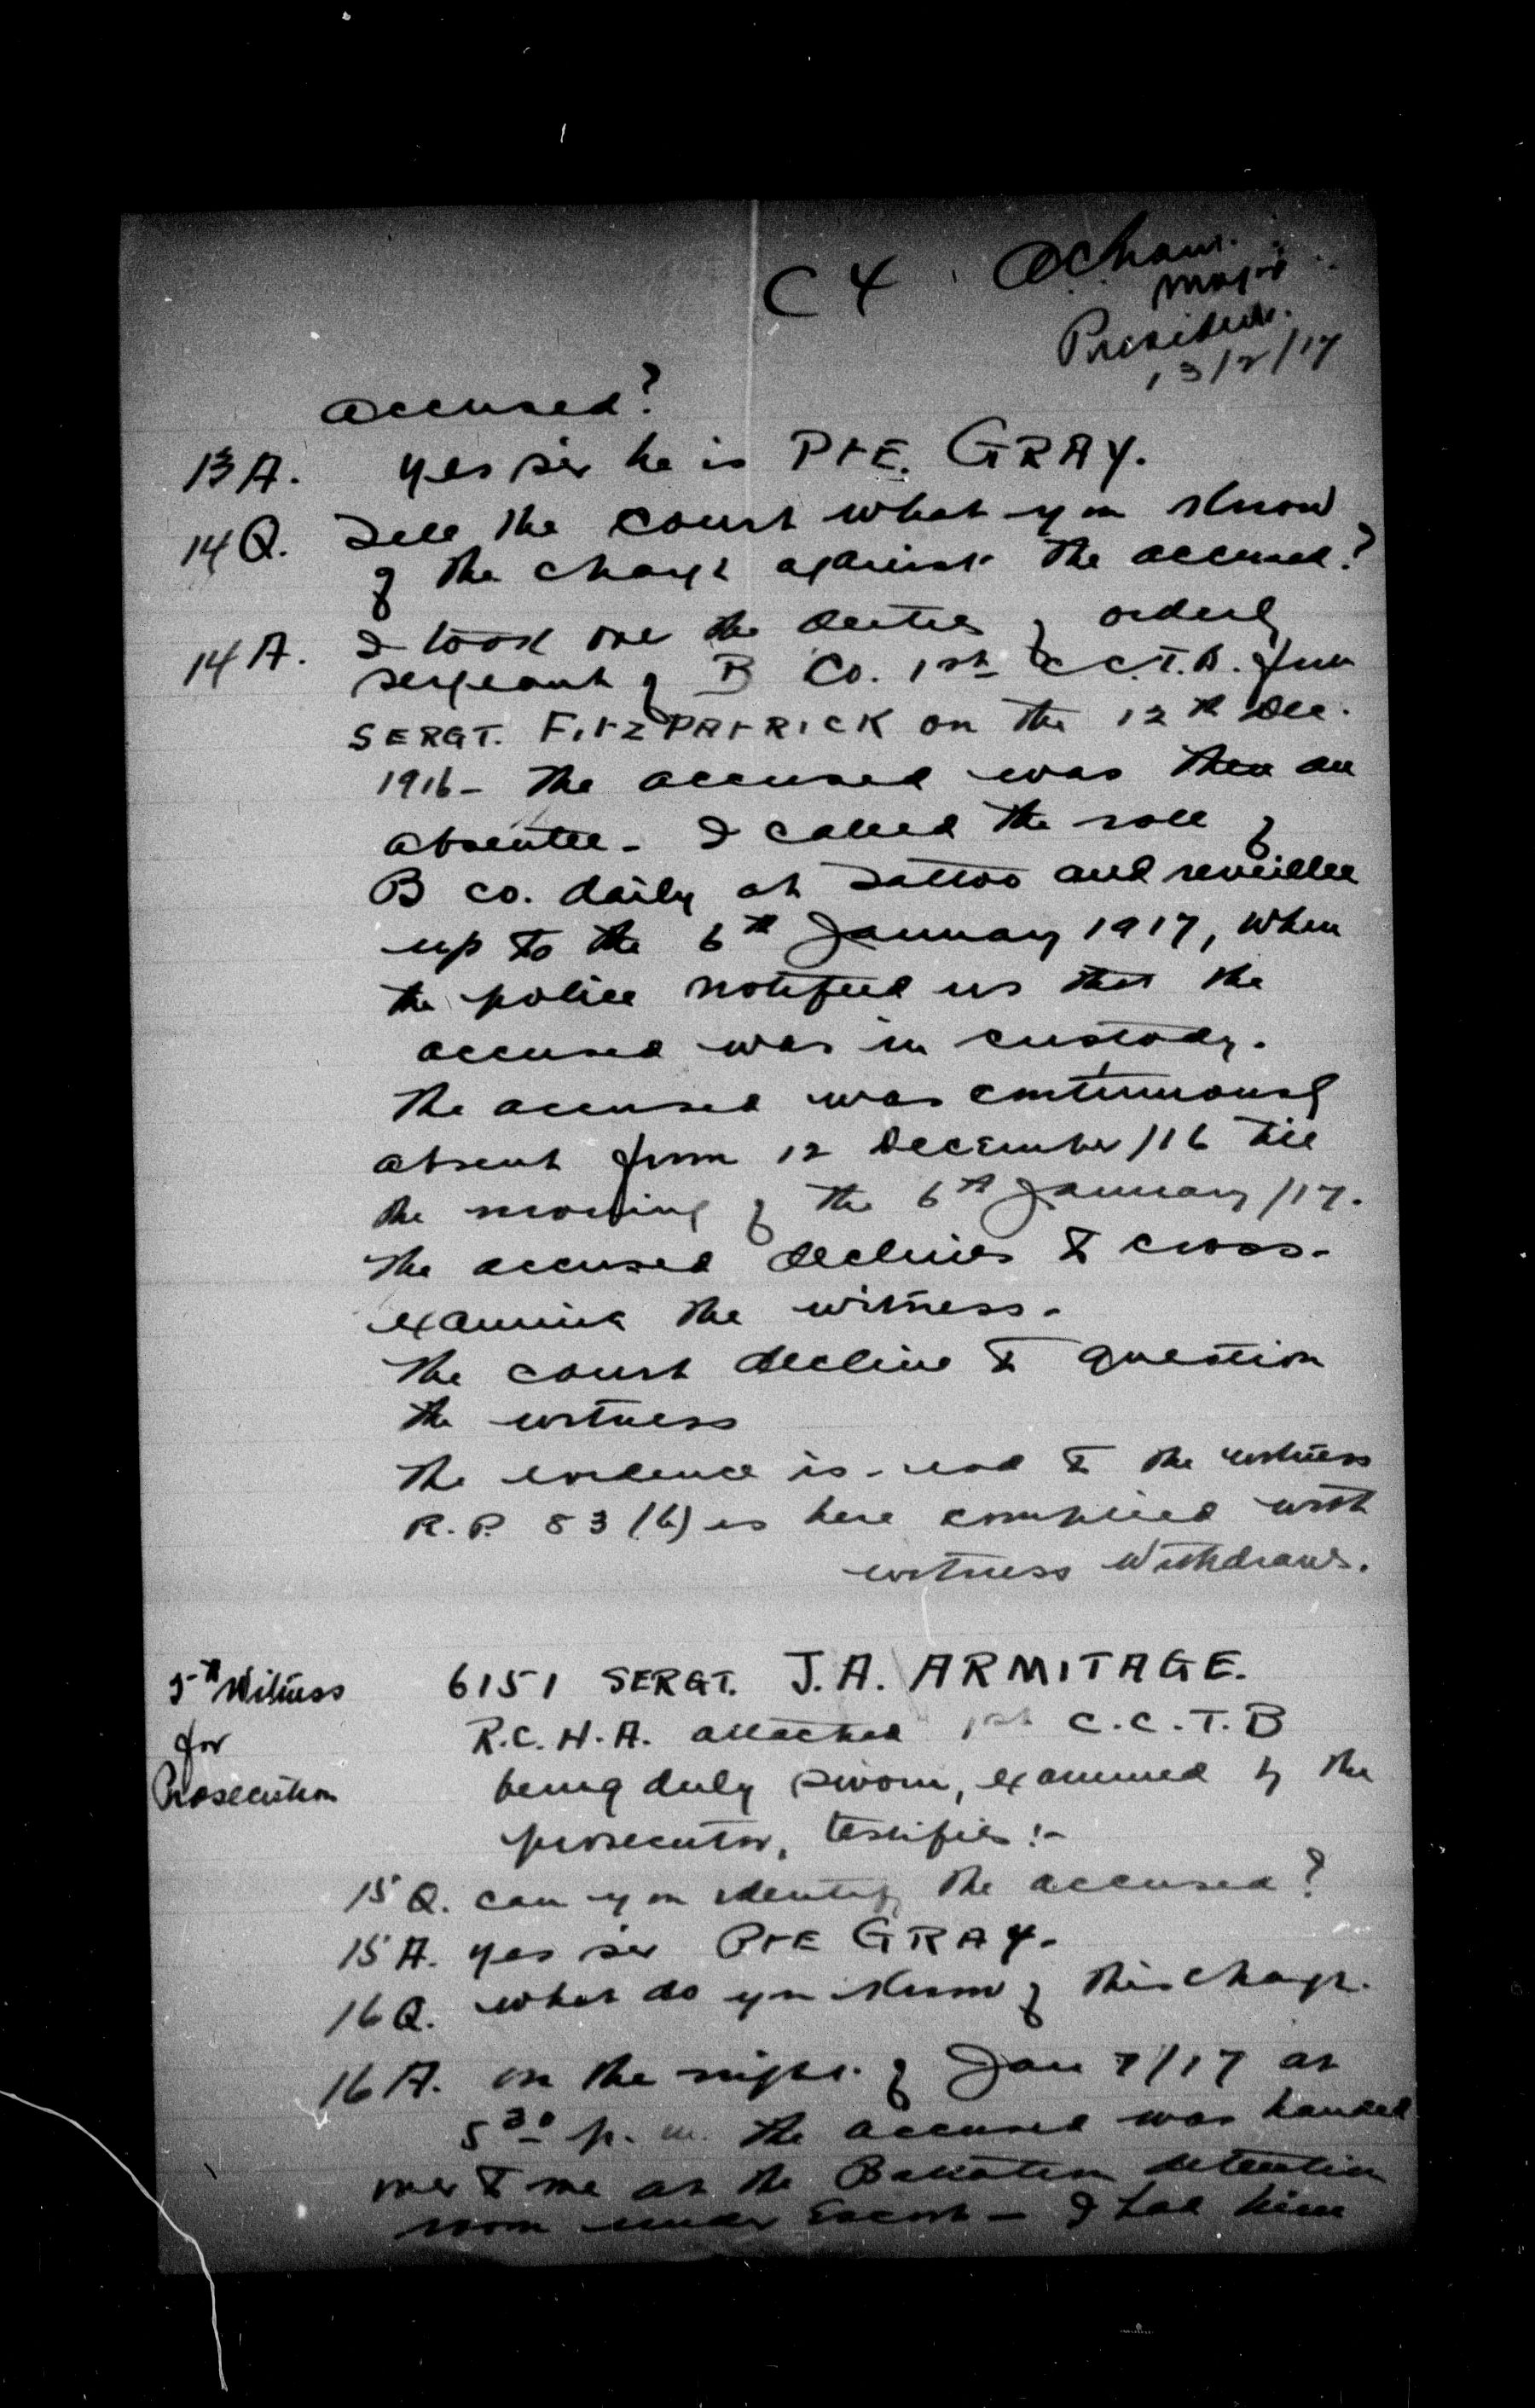 C 4
Major
President.
13/2/17
accused?
13 A. yes sir he is PTE. GRAY.
14 Q. Tell the court what you know
of the charge against the accused?
14 A. I took over the duties of orderly
sergeant of B Co. 1st C.C.T.B. from
SERGT. FITZPATRICK on the 12th Dec.
1916 - The accused was then an
absentee - I called the roll of
B co. daily at Tattoo and reveillee
up to the 6th January 1917, when
the police notified us that the
accused was in custody.
The accused was continuously
absent from 12 December /16 till
the morning of the 6th January /17.
The accused declines to cross-
examine the witness.
The court decline to question
the witness
The evidence is read to the witness
R.P. 83 (b) is here complied with
witness withdraws.
5th Witness
for
Prosecution
6151 SERGT. J.A. ARMITAGE.
R.C.H.A. attached 1st C.C.T.B
being duly sworn, examined by the
prosecutor, testifies:-
15 Q. can you identify the accused?
15 A. yes sir PTE GRAY.
16 Q. what do you know of this charge.
16 A. on the night of Jan 7/17 at
5 30 p.m. the accused was handed
over to me at the Battalion detention
room under Escort - I had him